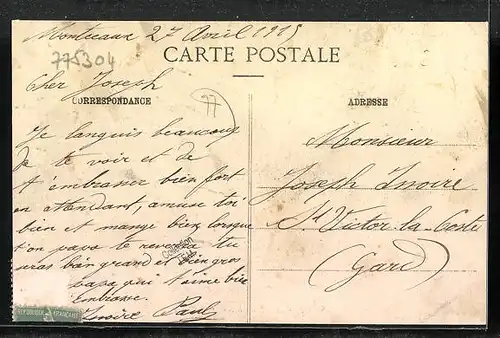 Montceaux 2 Avril 1915
CARTE POSTALE
775304
Cher Joseph
CORRESPONDANCE
77
ADRESSE
Je languis beaucoup
de te voir et de
t'embrasser bien fort
en attendant, amuse toi
bien et mange bien lorsque
ton papa te reverra tu
seras bien grand et bien gros
papa qui t'aime bien
Embrasse.
Paul
Monsieur
Joseph Inoire
St Victor-la-Coste
(Gard)
REPUBLIQUE FRANÇAISE